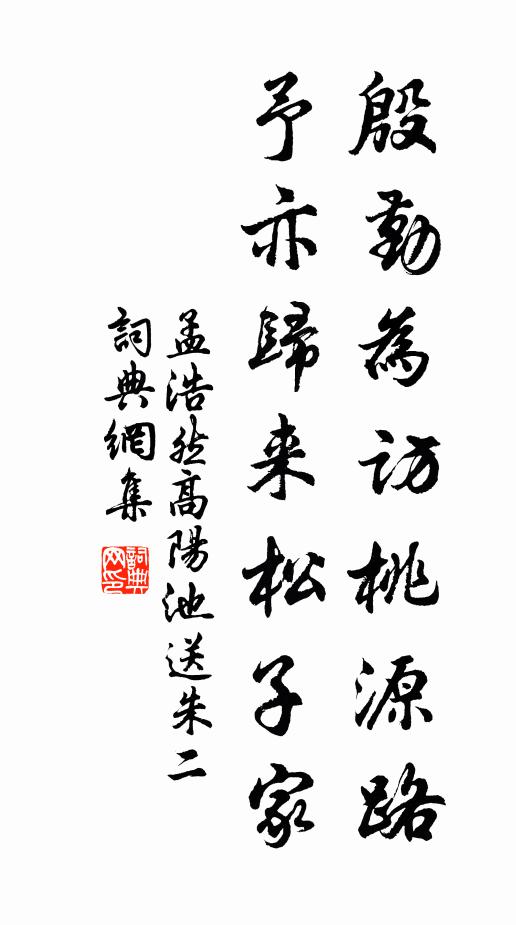 殷勤為访桃源路
予亦歸来松子家
孟浩然高陽池送朱二
詞典網集
詞典网印